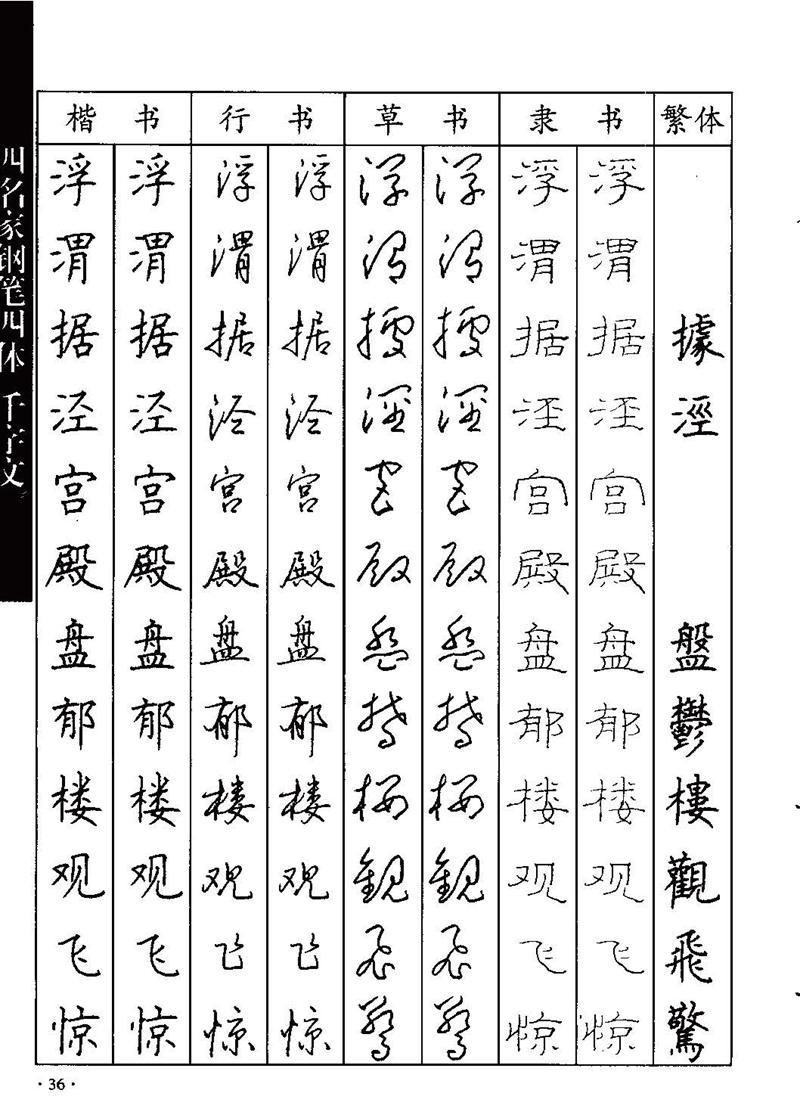 四名家钢笔四体千字文
楷书 行书 草书 隶书 繁体
浮 浮 浮 浮 浮 浮 浮 浮
渭 渭 渭 渭 渭 渭 渭 渭
据 据 据 据 據 據 据 据 據
泾 泾 泾 泾 涇 涇 泾 泾 涇
宫 宫 宫 宫 宫 宫 宫 宫
殿 殿 殿 殿 殿 殿 殿 殿
盘 盘 盘 盘 盘 盘 盘 盘 盤
郁 郁 郁 郁 鬱 鬱 郁 郁 鬱
楼 楼 楼 楼 楼 楼 楼 楼 樓
观 观 观 观 觀 觀 观 观 觀
飞 飞 飞 飞 飛 飛 飞 飞 飛
惊 惊 惊 惊 驚 驚 惊 惊 驚
·36·